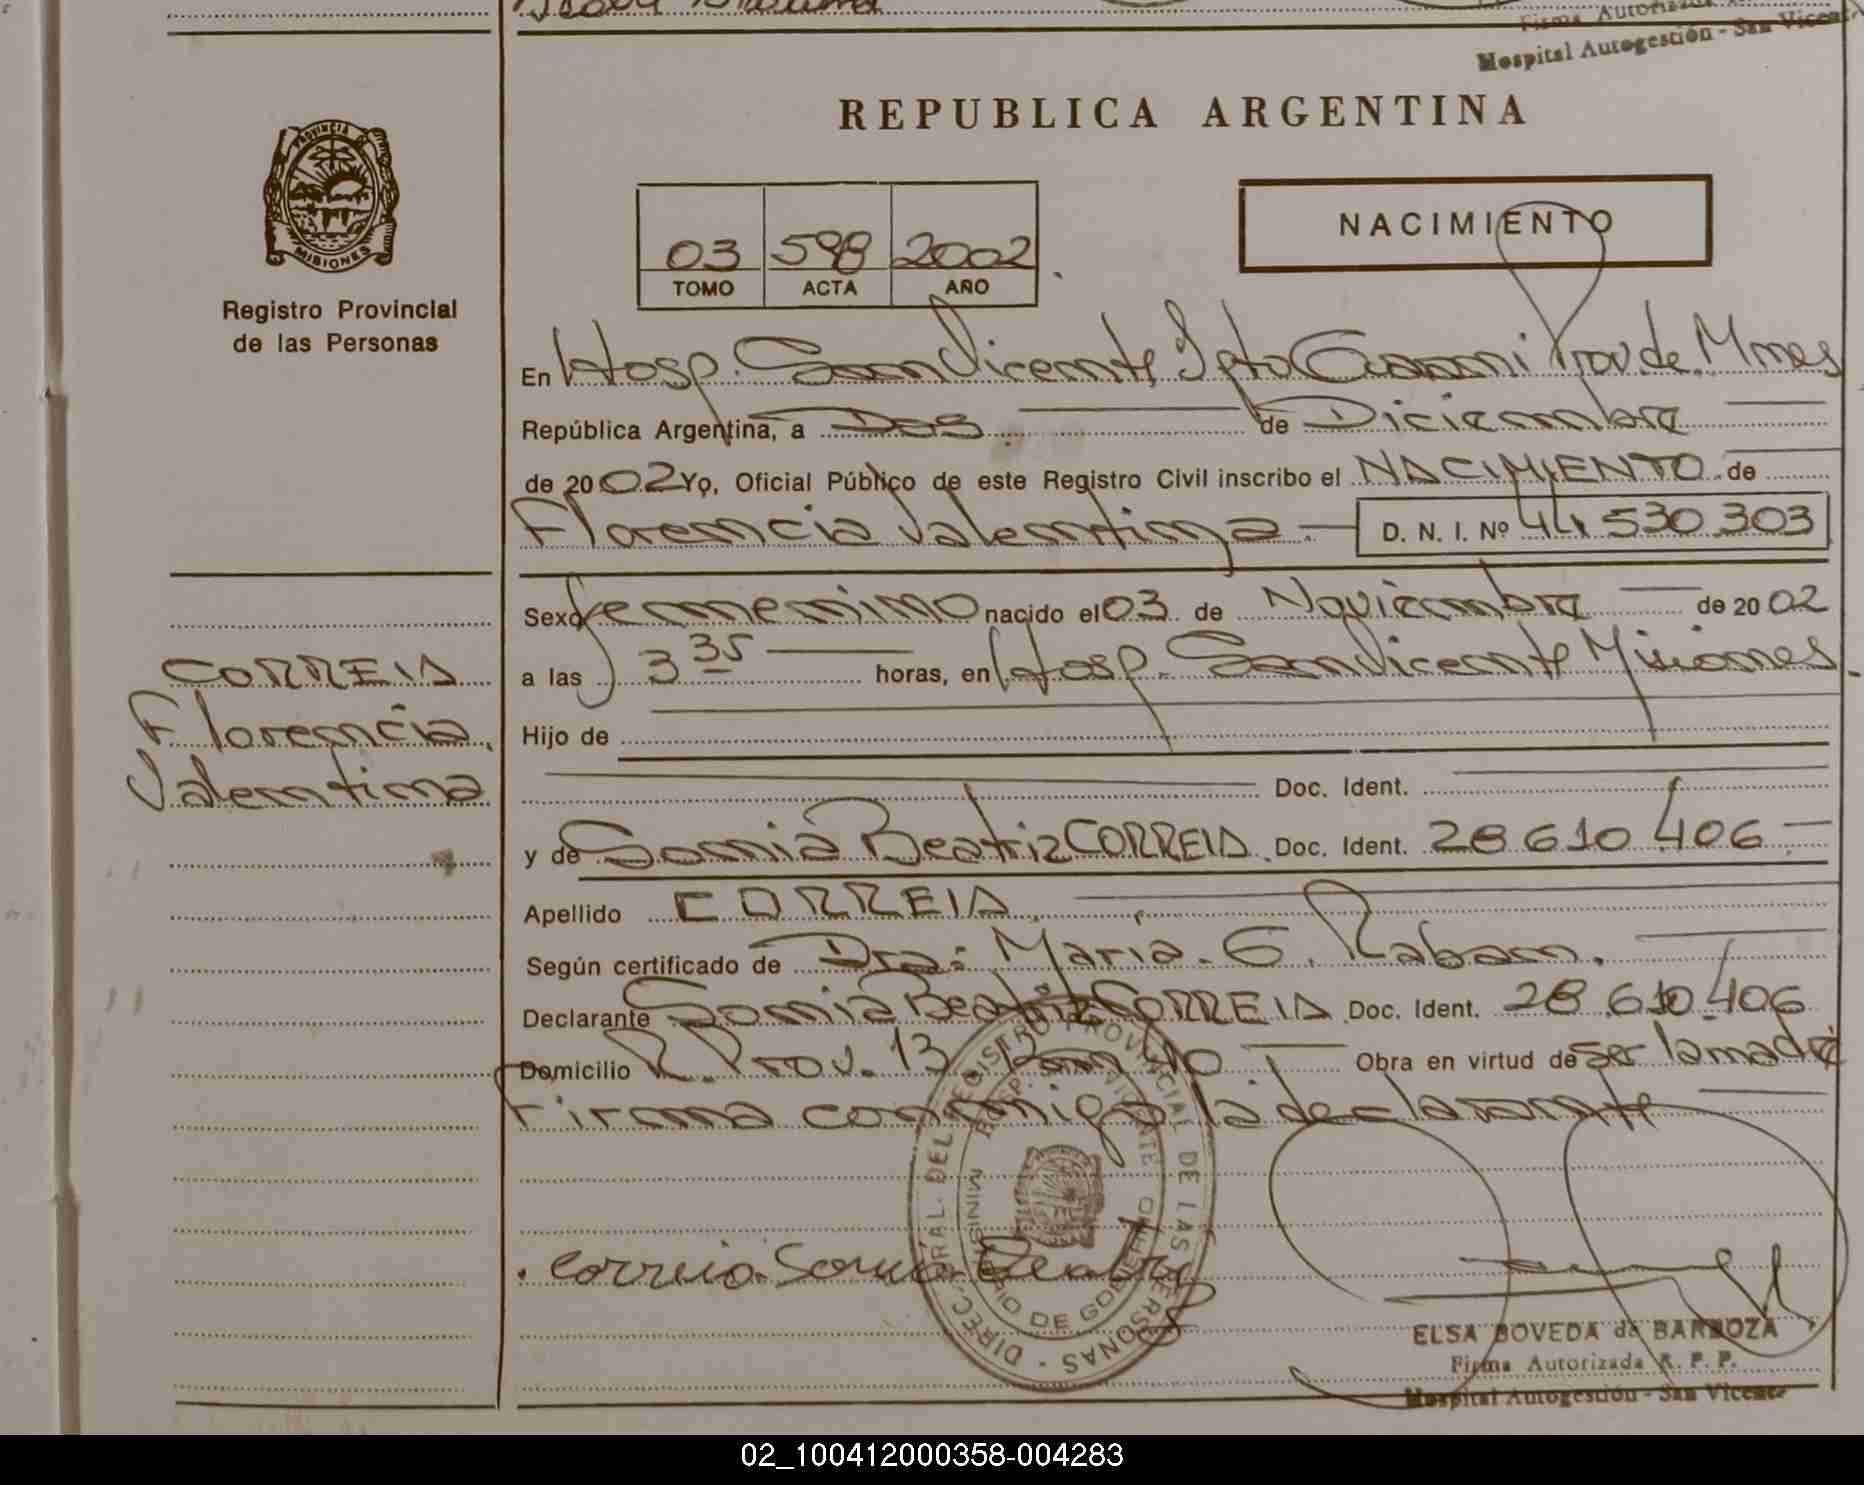 Firma Autorizada
Hospital Autogestión - San Vicente
REPUBLICA ARGENTINA
PROVINCIA DE
MISIONES
Registro Provincial
de las Personas
03 598 2002
TOMO ACTA AÑO
NACIMIENTO
En Hosp. San Vicente, Dpto Guarani Prov. de Mnes
República Argentina, a Dos de Diciembre
de 2002 Yo, Oficial Público de este Registro Civil inscribo el NACIMIENTO de
Florencia Valentina. D. N. I. Nº 44.530.303
Sexo femenino nacido el 03 de Noviembre de 2002
a las 3 35 horas, en Hosp. San Vicente Misiones.
CORREIA
Florencia
Valentina
Hijo de
Doc. Ident.
y de Sonia Beatriz CORREIA. Doc. Ident. 28.610.406
Apellido CORREIA
Según certificado de Dra: Maria. G. Raban.
Declarante Sonia Beatriz CORREIA Doc. Ident. 28.610.406
Domicilio R. Prov. 13 Km 40 Obra en virtud de ser la madre
Firma conmigo la declarante
DIREC. GRAL. DEL REGISTRO PROVINCIAL DE LAS PERSONAS
HOSP. SAN VICENTE
MINISTERIO DE GOBIERNO
Correia Sonia Beatriz
ELSA BOVEDA de BARBOZA
Firma Autorizada R. P. P.
Hospital Autogestión - San Vicente
02_100412000358-004283